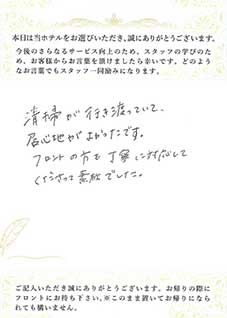 本日は当ホテルをお選びいただき、誠にありがとうございます。
今後のさらなるサービス向上のため、スタッフの学びのた
め、お客様からお言葉を頂けましたら幸いです。どのよう
なお言葉でもスタッフ一同励みになります。
清掃が行き渡っていて、
居心地がよかったです。
フロントの方も丁寧に対応して
くださって素敵でした。
ご記入いただき誠にありがとうございます。お帰りの際に
フロントにお持ち下さい。※このまま置いてお帰りになら
れても構いません。